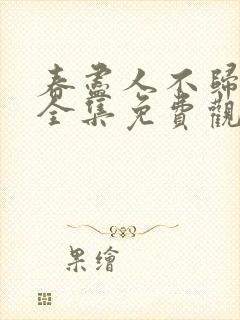 春盡人不歸
全集免費觀
果繪